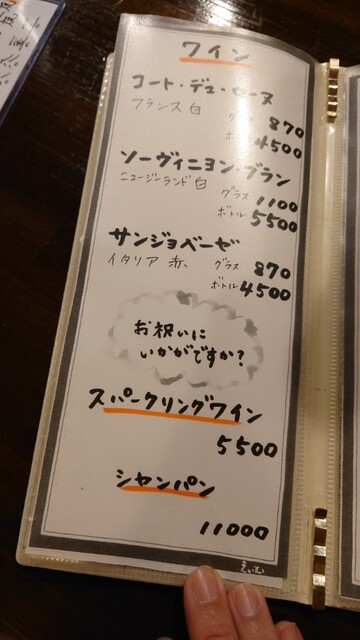 ワイン
コート・デュ・ローヌ
フランス 白 グラス 870
ボトル 4500
ソーヴィニヨン・ブラン
ニュージーランド 白 グラス 1100
ボトル 5500
サンジョベーゼ
イタリア 赤 グラス 870
ボトル 4500
お祝いに
いかがですか?
スパークリングワイン
5500
シャンパン
11000